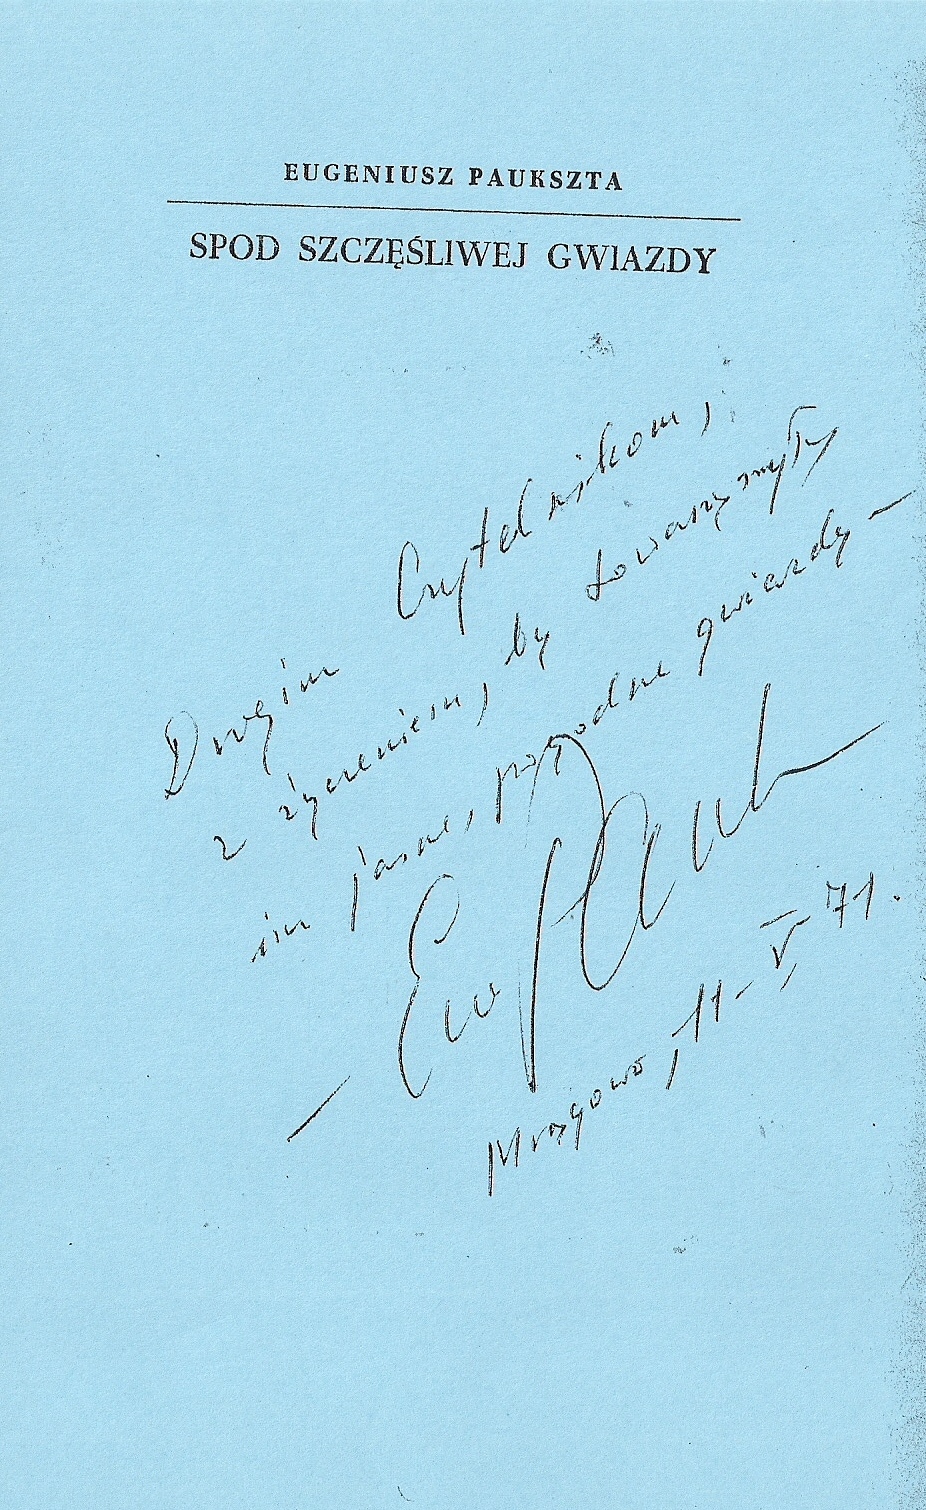 EUGENIUSZ PAUKSZTA
SPOD SZCZĘŚLIWEJ GWIAZDY
Drogim Czytelnikom,
z życzeniem, by towarzyszyły
im jasne, pogodne gwiazdy –
Mrągowo, 11-V-71.